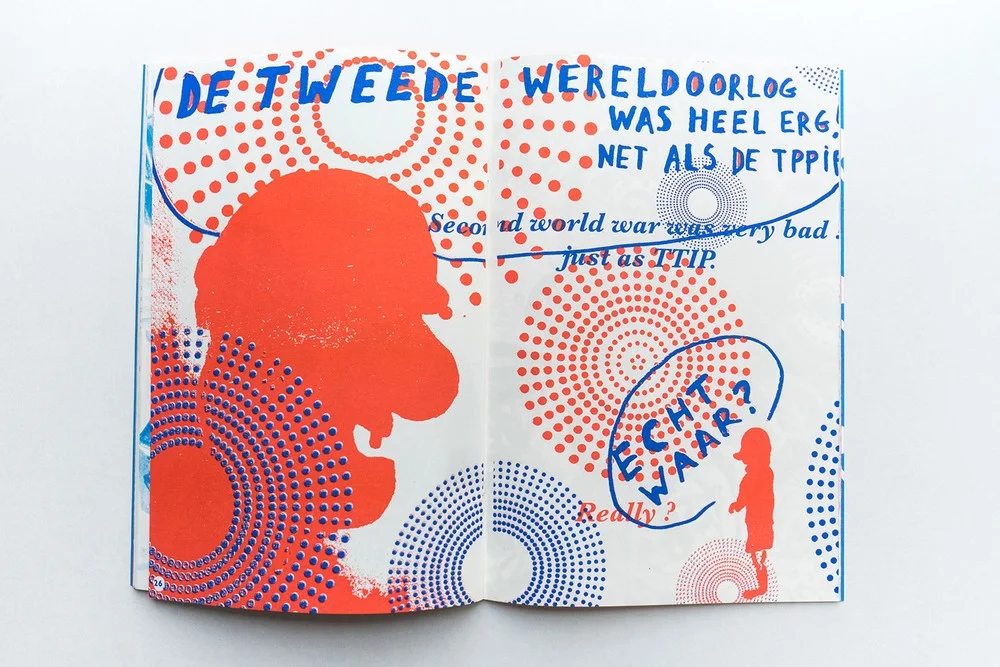 DE TWEEDE WERELDOORLOG
WAS HEEL ERG!
NET ALS DE
Second world war was very bad.
just as TTIP.
ECHT
WAAR?
Really ?
26